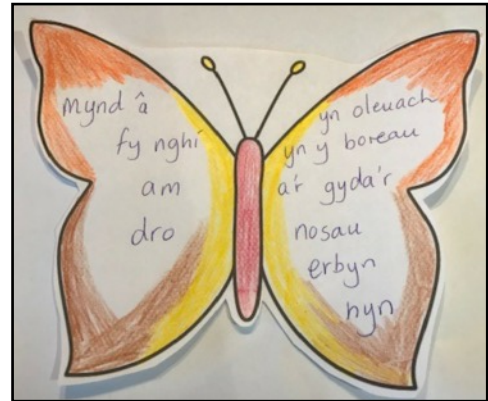 Mynd â
fy nghi
am
dro
yn oleuach
yn y boreau
a'r gyda'r
nosau
erbyn
hyn